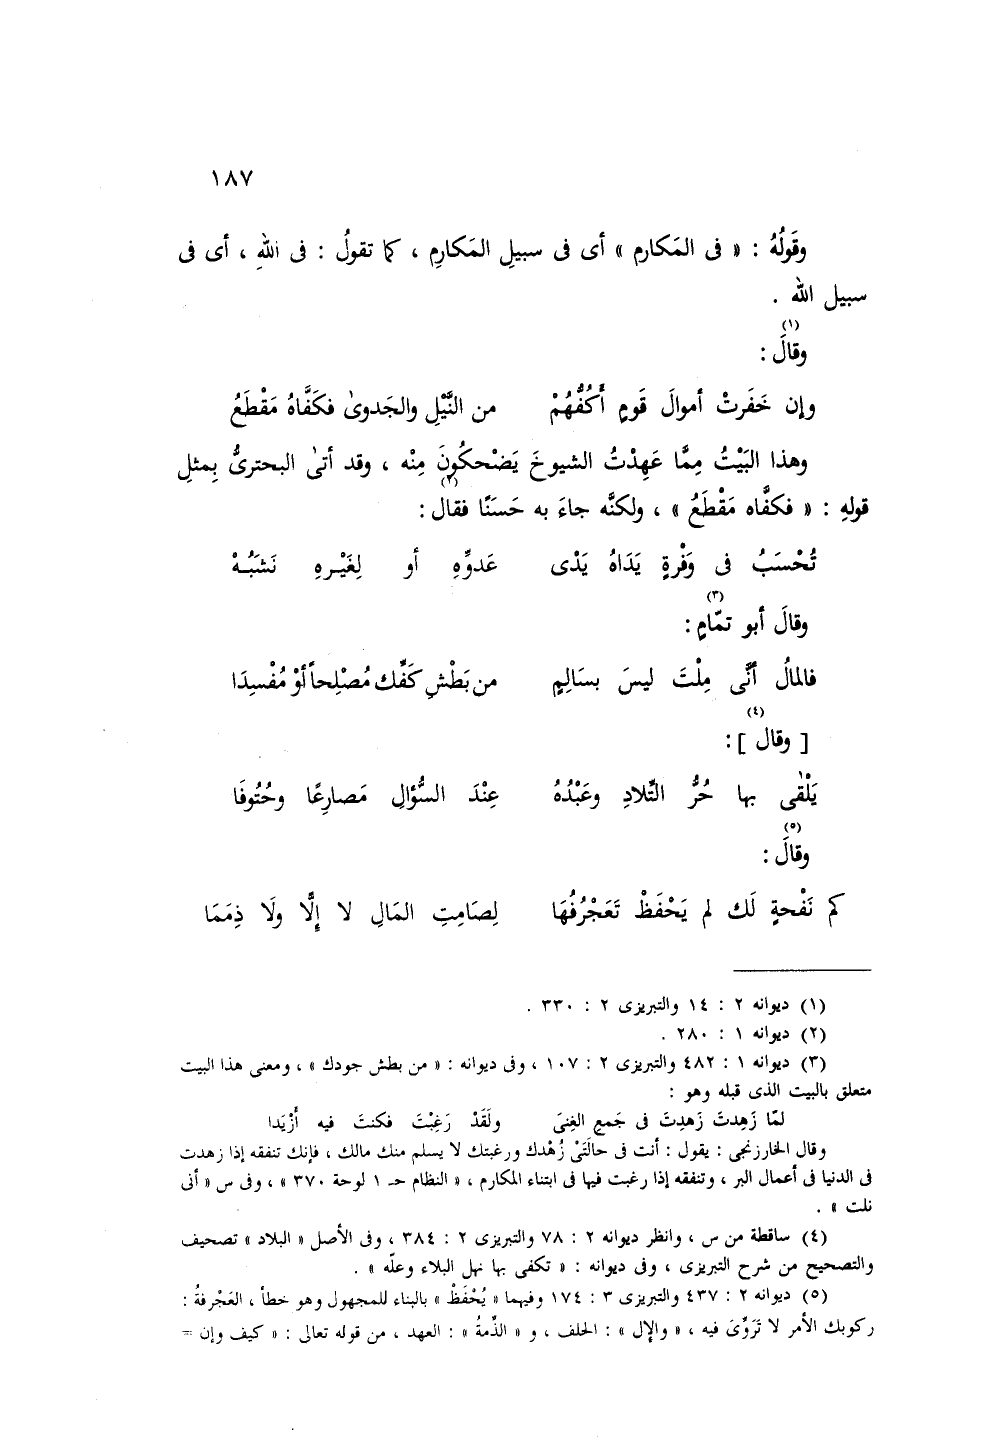 ١٨٧
وقَولُهُ : « فى المَكارم » أى فى سبيلِ المَكارِم ، كما تقولُ : فى اللهِ ، أى فى
سبيل الله .
وقالَ (١) :
وإن خَفَرتْ أموالَ قَومٍ أَكُفُّهُمْ من النَّيْلِ والجَدوىٰ فكَفَّاهُ مَقْطَعُ
وهذا البَيْتُ مِمَّا عَهِدْتُ الشيوخَ يَضْحكُونَ مِنْه ، وقد أتىٰ البحترىُّ بِمثلِ
قولهِ : « فكفَّاه مَقْطَعُ » ، ولكنَّه جاءَ به حَسَنًا فقال (٢) :
تُحْسَبُ فى وَفْرةٍ يَدَاهُ يَدْى عَدوِّهِ أو لِغَيْرِهِ نَشَبُهْ
وقالَ أبو تمّامٍ (٣) :
فالمالُ أنَّى مِلْتَ ليسَ بسَالِمٍ من بَطْشِ كَفِّك مُصْلِحاً أوْ مُفْسِدَا
[ وقال (٤) ] :
يَلْقٰى بها حُرُّ التِّلادِ وعَبْدُهُ عِنْدَ السُّؤالِ مَصارِعًا وحُتُوفَا
وقالَ (٥) :
كم نَفْحةٍ لَك لم يَحْفَظْ تَعَجْرُفُهَا لِصَامِتِ المَالِ لا إلَّا ولَا ذِمَمَا
(١) ديوانه ٢ : ١٤ والتبريزى ٢ : ٣٣٠ .
(٢) ديوانه ١ : ٢٨٠ .
(٣) ديوانه ١ : ٤٨٢ والتبريزى ٢ : ١٠٧ ، وفى ديوانه : « من بطش جودك » ، ومعنى هذا البيت
متعلق بالبيت الذى قبله وهو :
لمّا زَهِدتَ زَهِدتَ فى جَمعِ الغِنىَ ولَقَدْ رَغِبْتَ فكنتَ فيه أزْيَدا
وقال الخارزنجى : يقول : أنت فى حالَتَىْ زُهْدك ورغبتك لا يسلم منك مالك ، فإنك تنفقه إذا زهدت
فى الدنيا فى أعمال البر ، وتنفقه إذا رغبت فيها فى ابتناء المكارم ، « النظام حـ ١ لوحة ٣٧٠ » ، وفى س « أنى
نلت » .
(٤) ساقطة من س ، وانظر ديوانه ٢ : ٧٨ والتبريزى ٢ : ٣٨٤ ، وفى الأصل « البلاد » تصحيف
والتصحيح من شرح التبريزى ، وفى ديوانه : « تكفى بها نهل البلاء وعلّه » .
(٥) ديوانه ٢ : ٤٣٧ والتبريزى ٣ : ١٧٤ وفيهما « يُحْفَظْ » بالبناء للمجهول وهو خطأ ، العَجْرفةُ :
ركوبك الأمر لا تَرَوِّىَ فيه ، « والإل » : الحلف ، و « الذِّمةُ » : العهد ، من قوله تعالى : « كيف وإن =